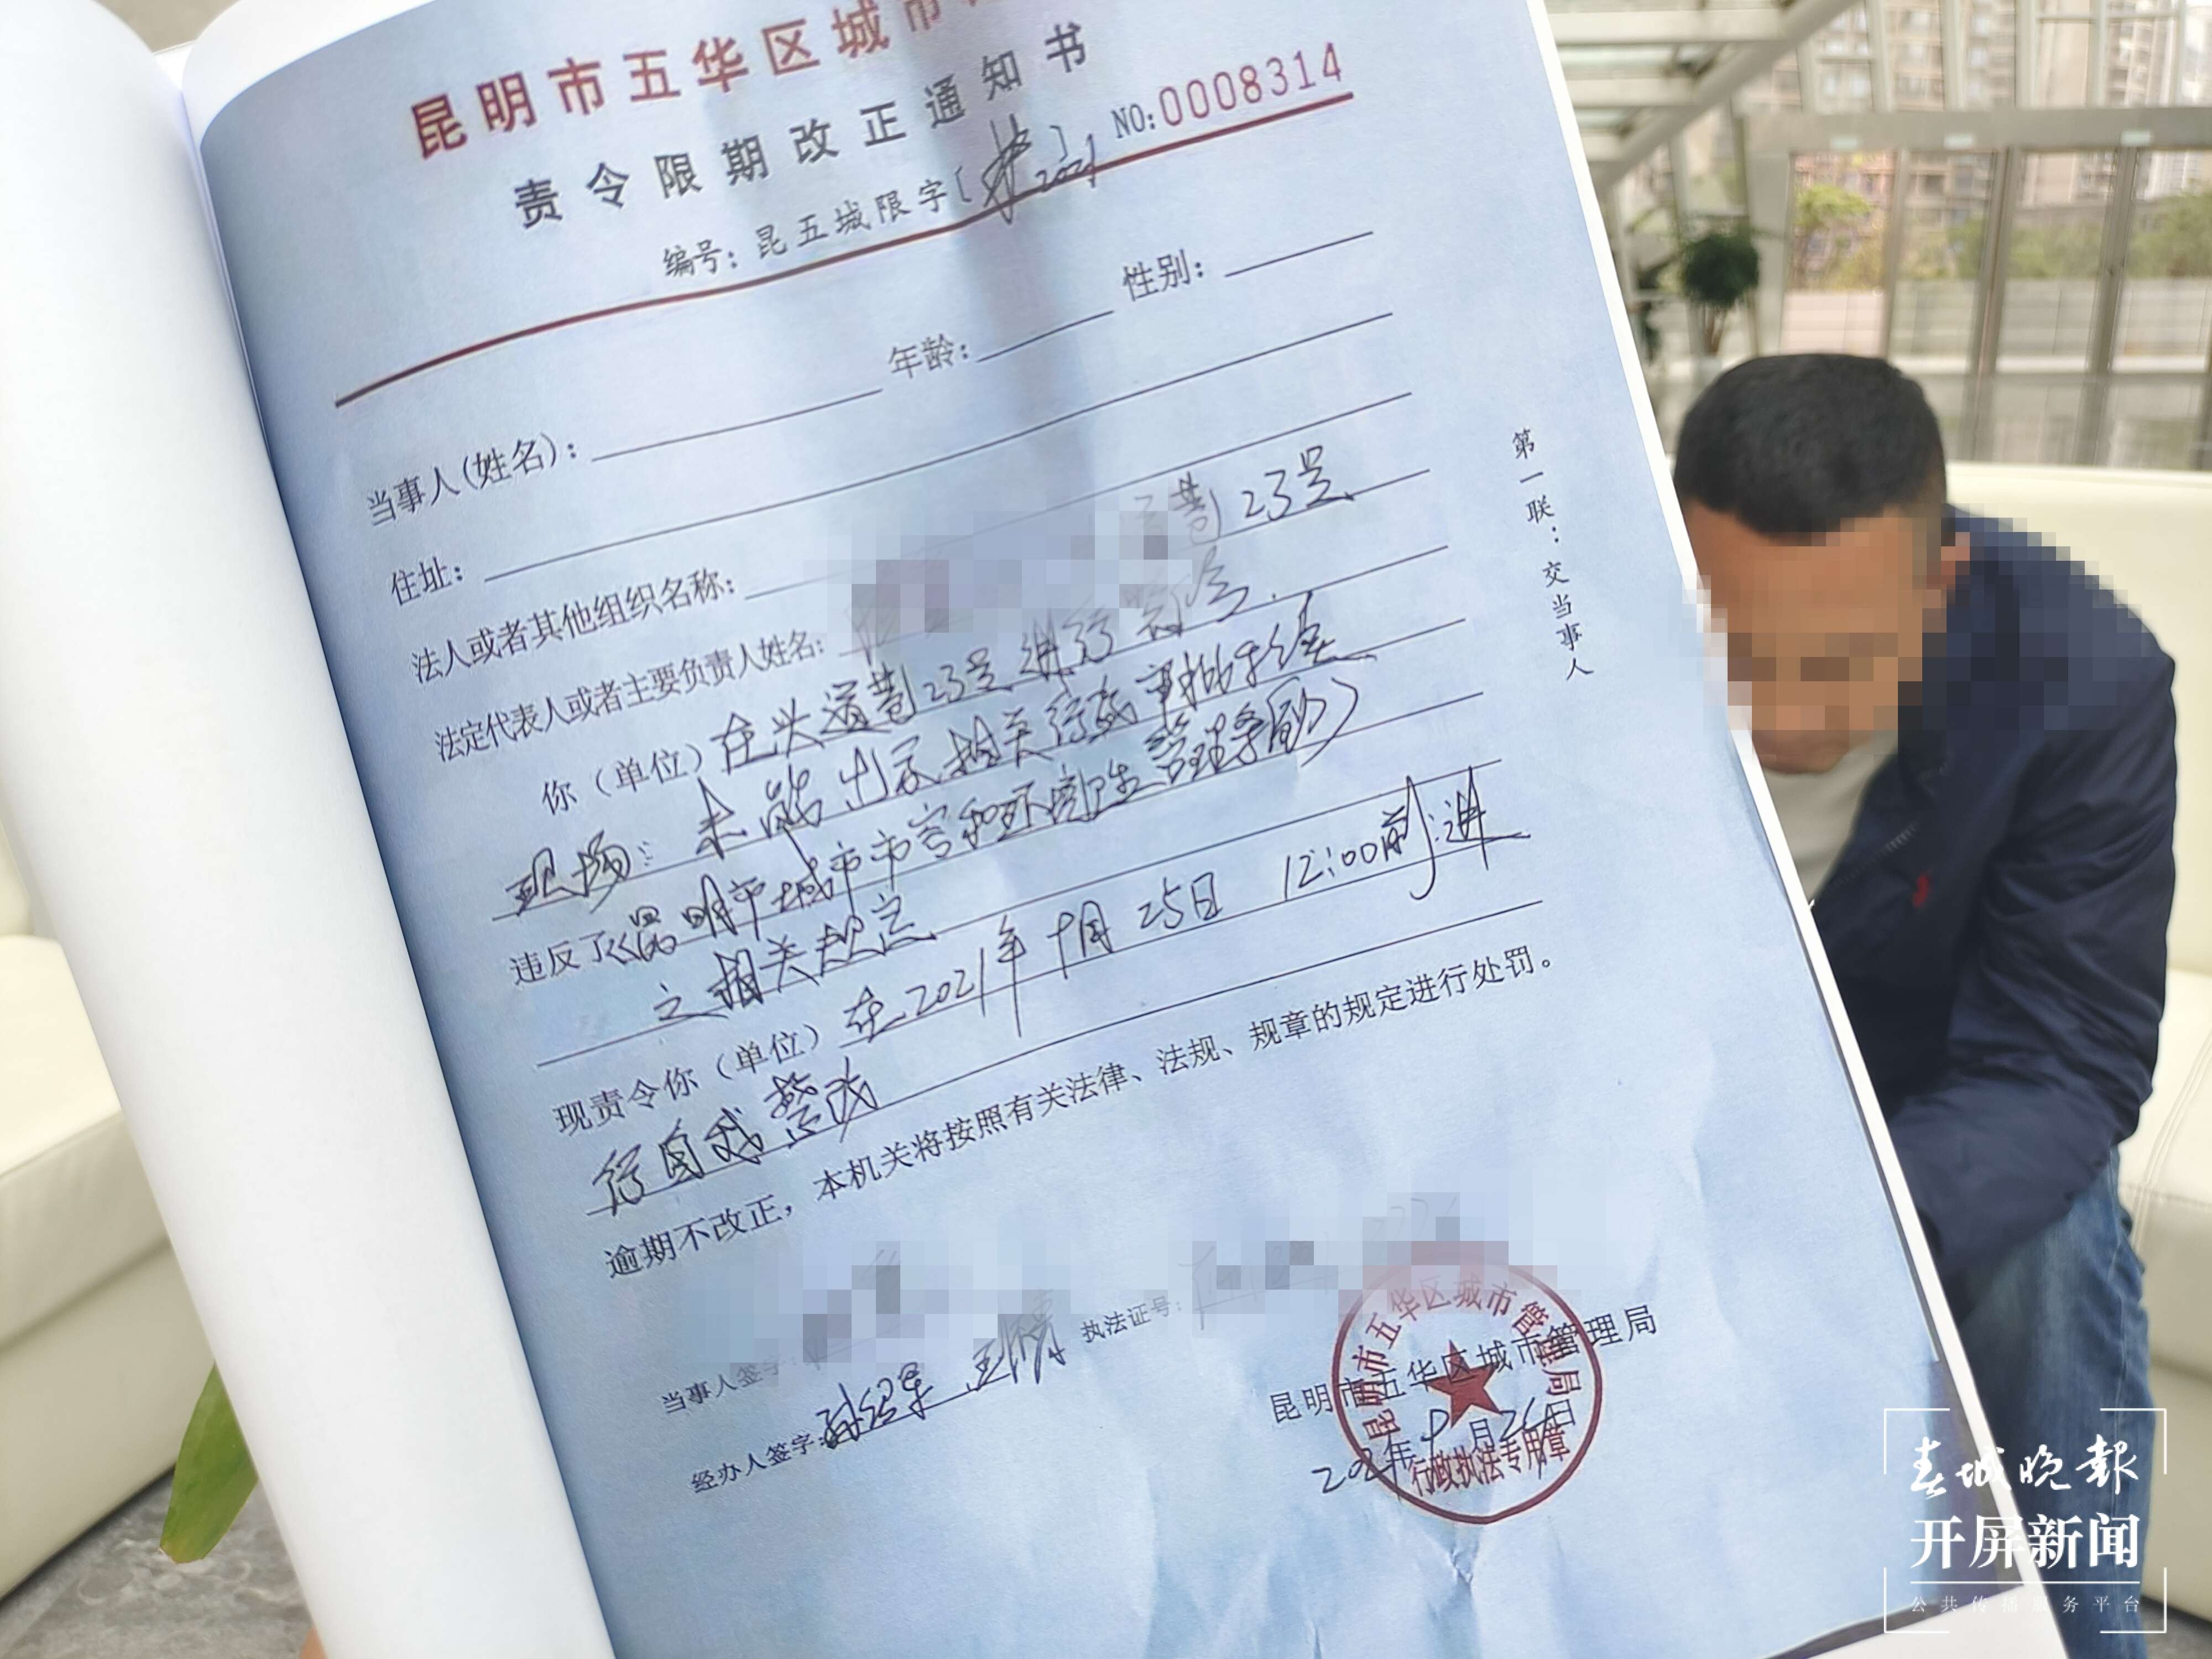 昆明市五华区城市
责令限期改正通知书
编号：昆五城限字[ 2021 ] NO:0008314
当事人(姓名)： 年龄： 性别：
住址：
法人或者其他组织名称： 巷23号
法定代表人或者主要负责人姓名：
你（单位）在兴道巷23号进行
现场：未能出示相关行政审批手续
违反了《昆明市城市市容和环境卫生管理条例》
之相关规定
现责令你（单位）在2021年 月25日 12:00前进
行自我整改
逾期不改正，本机关将按照有关法律、法规、规章的规定进行处罚。
当事人签字： 执法证号：
经办人签字：
昆明市五华区城市管理局
年 月 日
昆明市五华区城市管理局
行政执法专用章
第一联：交当事人
春城晚报
开屏新闻
公共传播服务平台